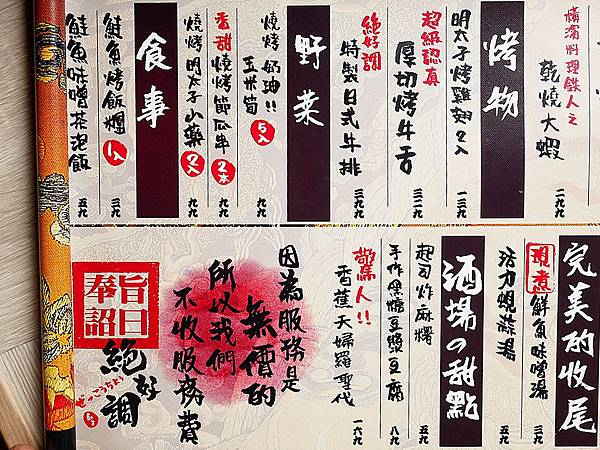 烤物
橫濱料理鉄人之
乾燒大蝦
二九九
明太子烤雞翅2入
一三九
超級認真
厚切烤牛舌
三二九
絶好調
特製日式牛排
三九九
野菜
燒烤奶油!!
玉米筍
5入
九九
香甜燒烤節瓜串
2本
九九
燒烤明太子山藥
2入
九九
食事
鮭魚烤飯糰
1入
三九
鮭魚味噌茶泡飯
五九
完美的收尾
現煮
鮮魚味噌湯
三九
活力蜆蒜湯
五九
酒場の甜點
起司炸麻糬
五九
手作黑糖豆漿豆腐
八九
驚人!!
香蕉天婦羅聖代
一六九
因為服務是
無價的
所以我們
不收服務費
旨日奉詔
絶好調
ぜっこうちょう